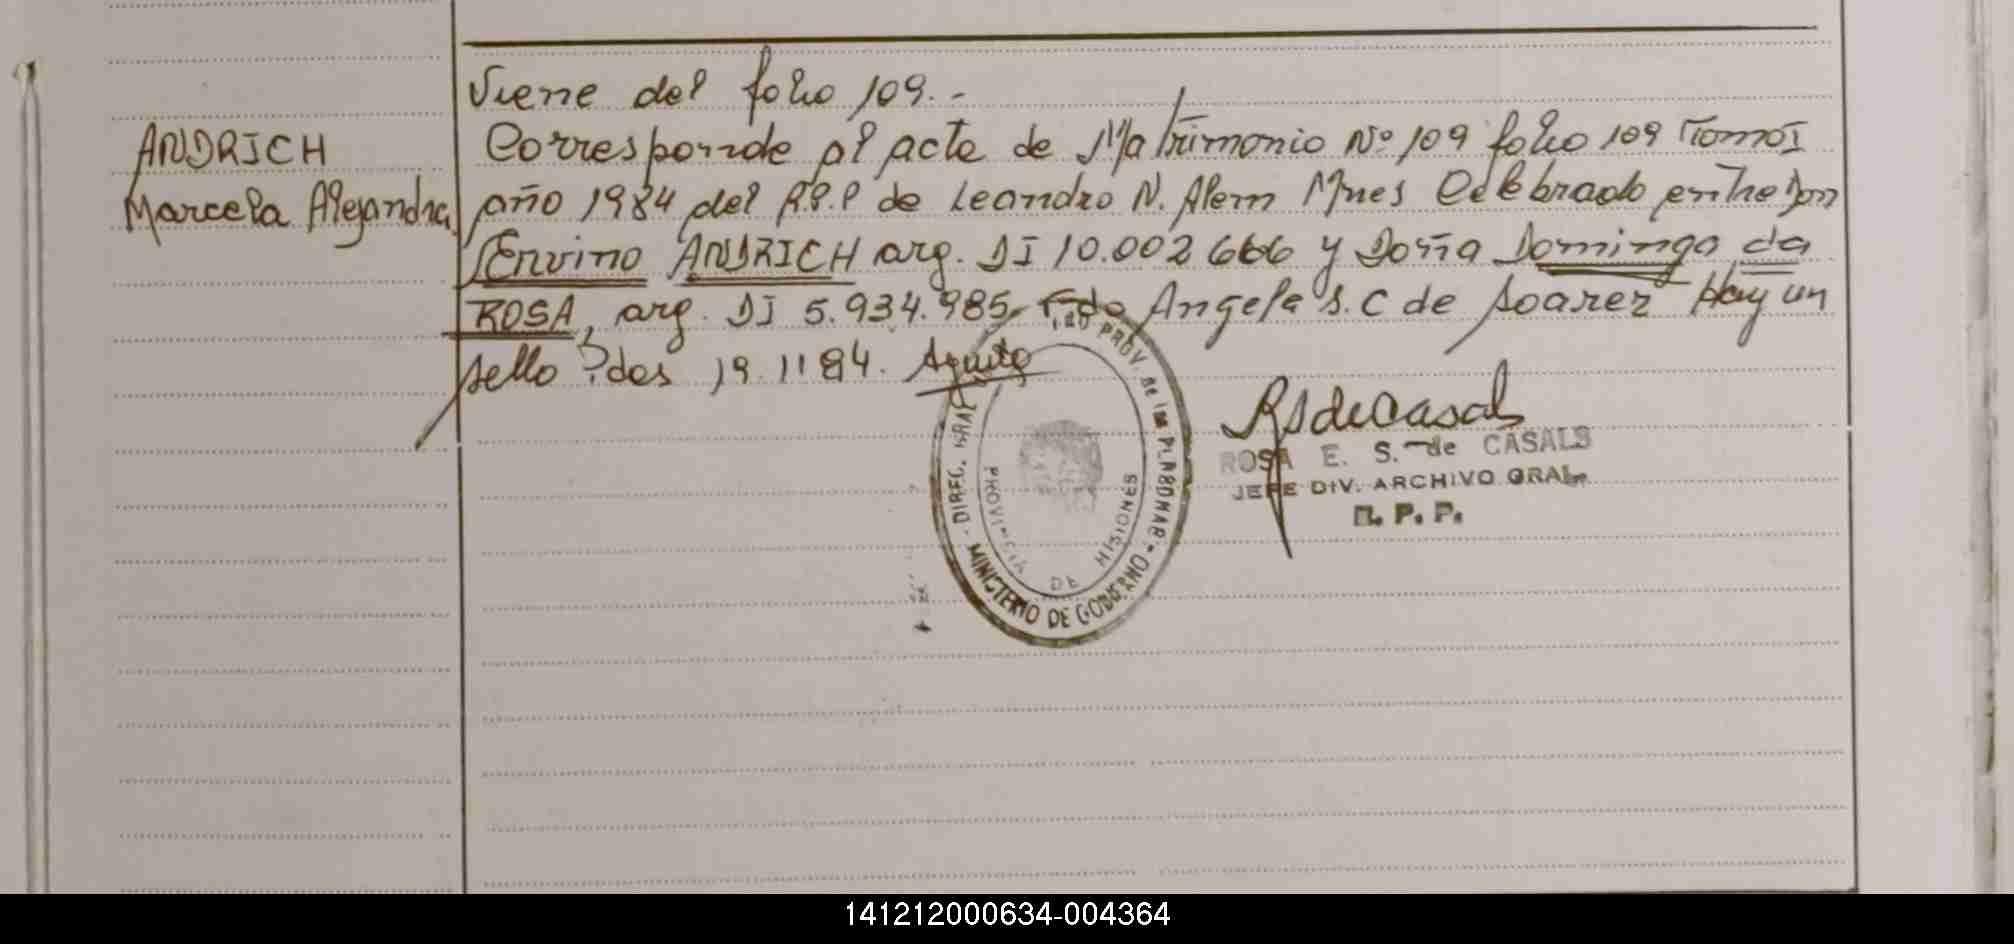 Viene del folio 109.-
ANDRICH
Marcela Alejandra.
Corresponde al acta de Matrimonio Nº 109 folio 109 Tomo I
año 1984 del R.P.P de Leandro N. Alem Mnes Celebrado entre Don
Ervino ANDRICH arg. DI 10.002 666 y Doña Dominga da
ROSA, arg. DI 5.934.985. Fdo Angela S. C de Soarez Hay un
sello Pdas 19.11 84.
ROSA E. S. de CASALS
JEFE DIV. ARCHIVO GRAL.
R. P. P.
DIREC. GRAL. PROV. de las PERSONAS
MINISTERIO DE GOBIERNO
PROVINCIA DE MISIONES
141212000634-004364